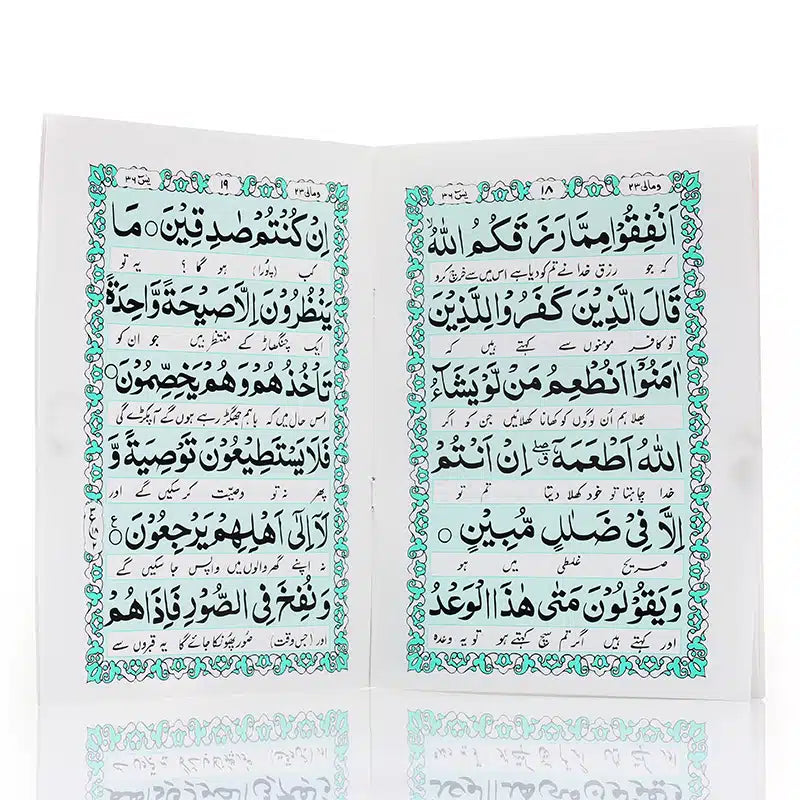 ومالی ۲۳ ۱۸ یٰسٓ ۳۶
اَنْفِقُوْا مِمَّا رَزَقَكُمُ اللّٰهُ
کہ جو رزق خدا نے تم کو دیا ہے اس میں سے خرچ کرو
قَالَ الَّذِيْنَ كَفَرُوْا لِلَّذِيْنَ
تو کافر مومنوں سے کہتے ہیں کہ
اٰمَنُوْٓا اَنُطْعِمُ مَنْ لَّوْ يَشَآءُ
بھلا ہم اُن لوگوں کو کھانا کھلائیں جن کو اگر
اللّٰهُ اَطْعَمَهٗٓ ۖق اِنْ اَنْتُمْ
خدا چاہتا تو خود کھلا دیتا تم تو
اِلَّا فِيْ ضَلٰلٍ مُّبِيْنٍ ○
صریح غلطی میں ہو
وَيَقُوْلُوْنَ مَتٰى هٰذَا الْوَعْدُ
اور کہتے ہیں اگر تم سچ کہتے ہو تو یہ وعدہ
ومالی ۲۳ ۱۹ یٰسٓ ۳۶
اِنْ كُنْتُمْ صٰدِقِيْنَ ○ مَا
کب (پورا) ہو گا ؟ یہ تو
يَنْظُرُوْنَ اِلَّا صَيْحَةً وَّاحِدَةً
ایک چنگھاڑ کے منتظر ہیں جو ان کو
تَاْخُذُهُمْ وَهُمْ يَخِصِّمُوْنَ ○
اس حال میں کہ باہم جھگڑ رہے ہوں گے آ پکڑے گی
فَلَا يَسْتَطِيْعُوْنَ تَوْصِيَةً وَّ
پھر نہ تو وصیّت کر سکیں گے اور
لَآ اِلٰٓى اَهْلِهِمْ يَرْجِعُوْنَ ○ع
نہ اپنے گھر والوں میں واپس جا سکیں گے
وَنُفِخَ فِي الصُّوْرِ فَاِذَا هُمْ
اور (جس وقت) صُور پھونکا جائے گا یہ قبروں سے